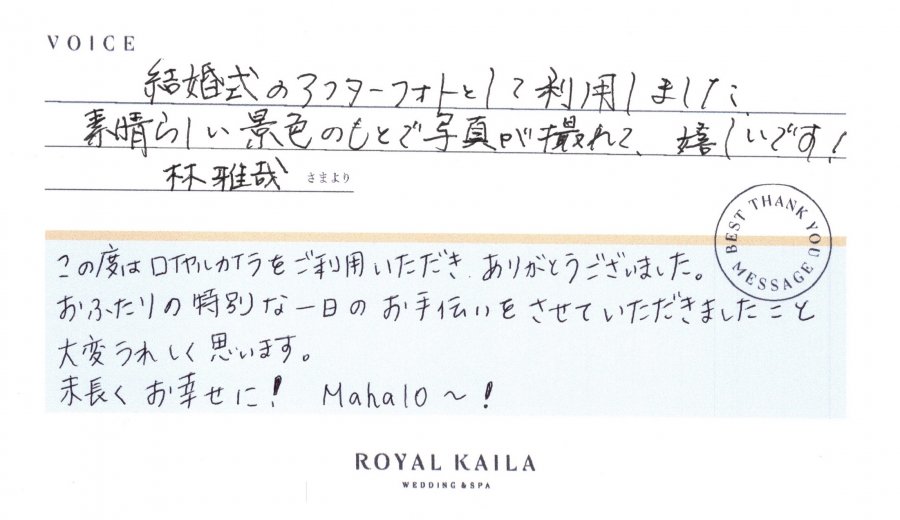 VOICE
結婚式のアフターフォトとして利用しました。
素晴らしい景色のもとで写真が撮れて、嬉しいです!
林雅哉 さまより
BEST THANK YOU MESSAGE
この度はロイヤルカイラをご利用いただき、ありがとうございました。
おふたりの特別な一日のお手伝いをさせていただきましたこと
大変うれしく思います。
末長くお幸せに! Mahalo〜!
ROYAL KAILA
WEDDING & SPA